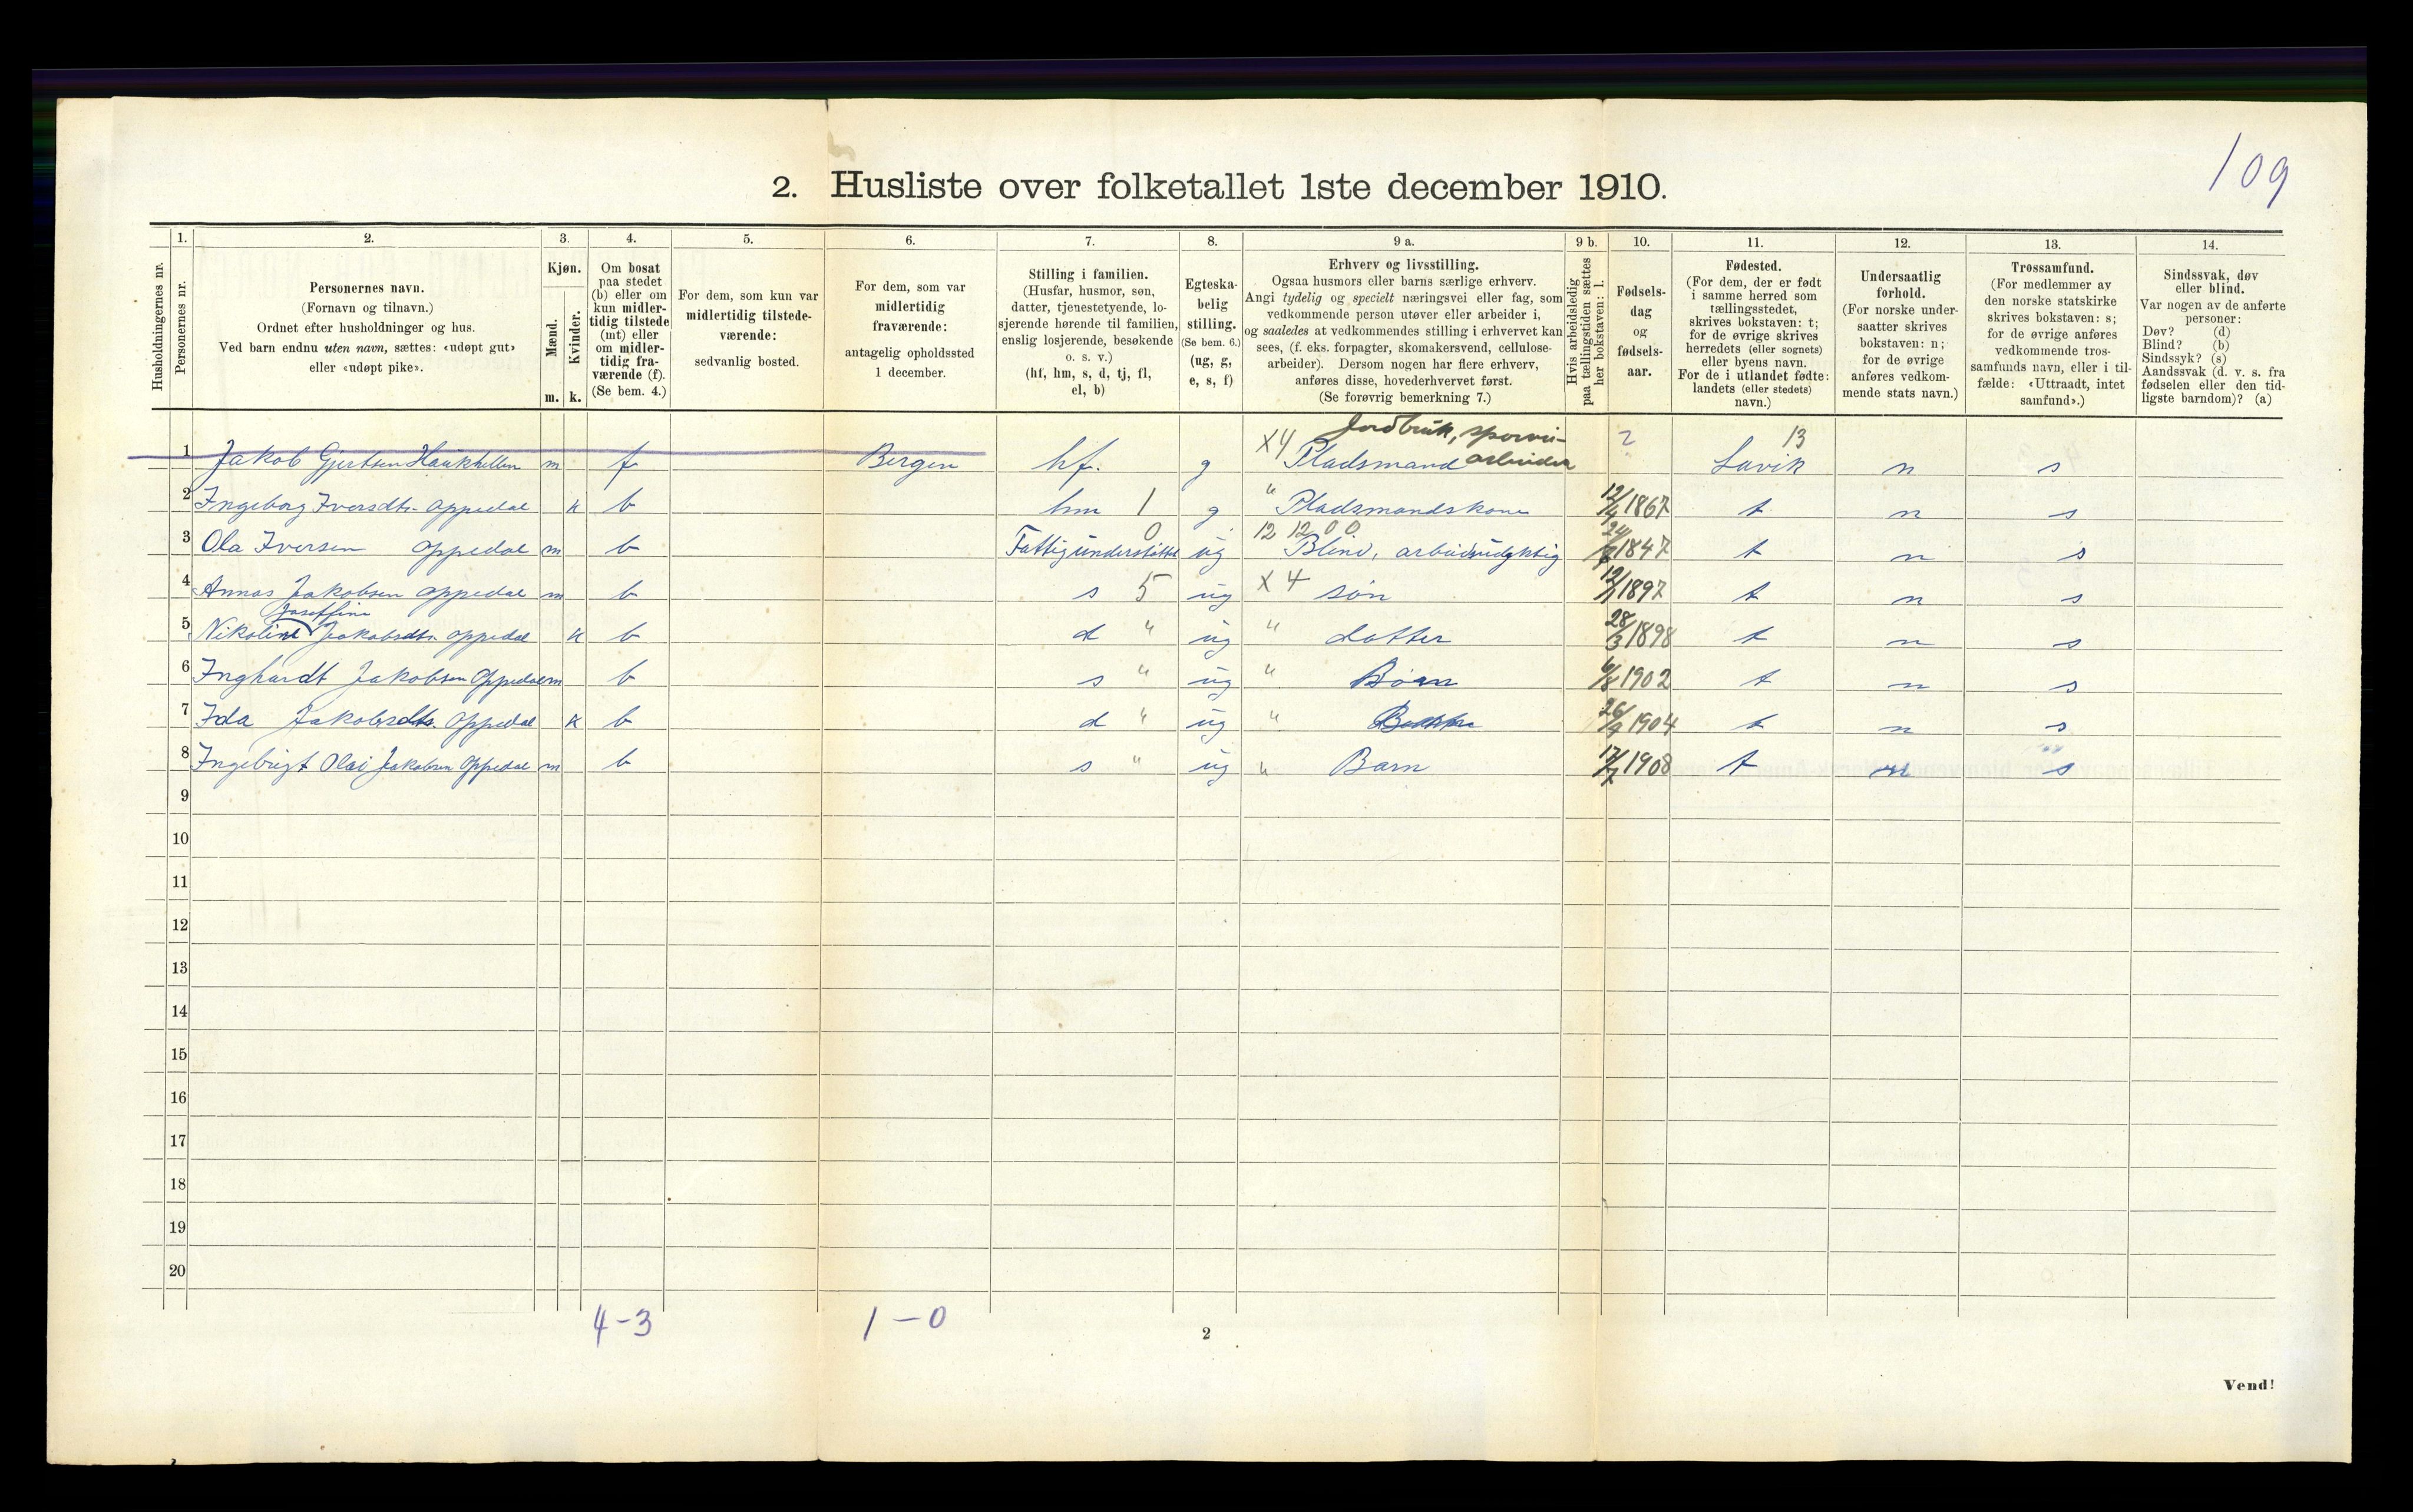 109
2. Husliste over folketallet 1ste december 1910.
Husholdningernes nr.
1.
Personernes nr.
2.
Personernes navn.
(Fornavn og tilnavn.)
Ordnet efter husholdninger og hus.
Ved barn endnu uten navn, sættes: «udøpt gut»
eller «udøpt pike».
3.
Kjøn.
Mænd.
Kvinder.
m. k.
4.
Om bosat
paa stedet
(b) eller om
kun midler-
tidig tilstede
(mt) eller
om midler-
tidig fra-
værende (f).
(Se bem. 4.)
5.
For dem, som kun var
midlertidig tilstede-
værende:
sedvanlig bosted.
6.
For dem, som var
midlertidig
fraværende:
antagelig opholdssted
1 december.
7.
Stilling i familien.
(Husfar, husmor, søn,
datter, tjenestetyende, lo-
sjerende hørende til familien,
enslig losjerende, besøkende
o. s. v.)
(hf, hm, s, d, tj, fl,
el, b)
8.
Egteska-
belig
stilling.
(Se bem. 6.)
(ug, g,
e, s, f)
9 a.
Erhverv og livsstilling.
Ogsaa husmors eller barns særlige erhverv.
Angi tydelig og specielt næringsvei eller fag, som
vedkommende person utøver eller arbeider i,
og saaledes at vedkommendes stilling i erhvervet kan
sees, (f. eks. forpagter, skomakersvend, cellulose-
arbeider). Dersom nogen har flere erhverv,
anføres disse, hovederhvervet først.
(Se forøvrig bemerkning 7.)
9 b.
Hvis arbeidsledig
paa tællingstiden sættes
her bokstaven: l.
10.
Fødsels-
dag
og
fødsels-
aar.
11.
Fødested.
(For dem, der er født
i samme herred som
tællingsstedet,
skrives bokstaven: t;
for de øvrige skrives
herredets (eller sognets)
eller byens navn.
For de i utlandet fødte:
landets (eller stedets)
navn.)
12.
Undersaatlig
forhold.
(For norske under-
saatter skrives
bokstaven: n;
for de øvrige
anføres vedkom-
mende stats navn.)
13.
Trossamfund.
(For medlemmer av
den norske statskirke
skrives bokstaven: s;
for de øvrige anføres
vedkommende tros-
samfunds navn, eller i til-
fælde: «Uttraadt, intet
samfund».)
14.
Sindssvak, døv
eller blind.
Var nogen av de anførte
personer:
Døv? (d)
Blind? (b)
Sindssyk? (s)
Aandssvak (d. v. s. fra
fødselen eller den tid-
ligste barndom)? (a)
Jordbruk, sporvei- 13
1 Jakob Gjertsen Haukhellen m f Bergen hf. g X4 Pladsmand arbeider ? Lavik n s
2 Ingeborg Iversdtr. Oppedal k b hm 1 g " Pladsmandskone 12/4 1867 t n s
0 12 12 0 0
3 Ola Iversen Oppedal m b Fattigunderstøttet ug Blind, arbeidsudyktig 1847 t n s
4 Annas Jakobsen Oppedal m b s 5 ug X4 søn 1897 t n s
Joseffine
5 Nikoline Jakobsdtr. Oppedal k b d " ug " datter 28/3 1898 t n s
6 Inghardt Jakobsen Oppedal m b s " ug " Barn 6/8 1902 t n s
7 Ida Jakobsdtr. Oppedal k b d " ug " 26/9 1904 t n s
8 Ingebrigt Olai Jakobsen Oppedal m b s " ug " Barn 17/7 1908 t n s
9
10
11
12
13
14
15
16
17
18
19
20
4-3 1-0
2
Vend!